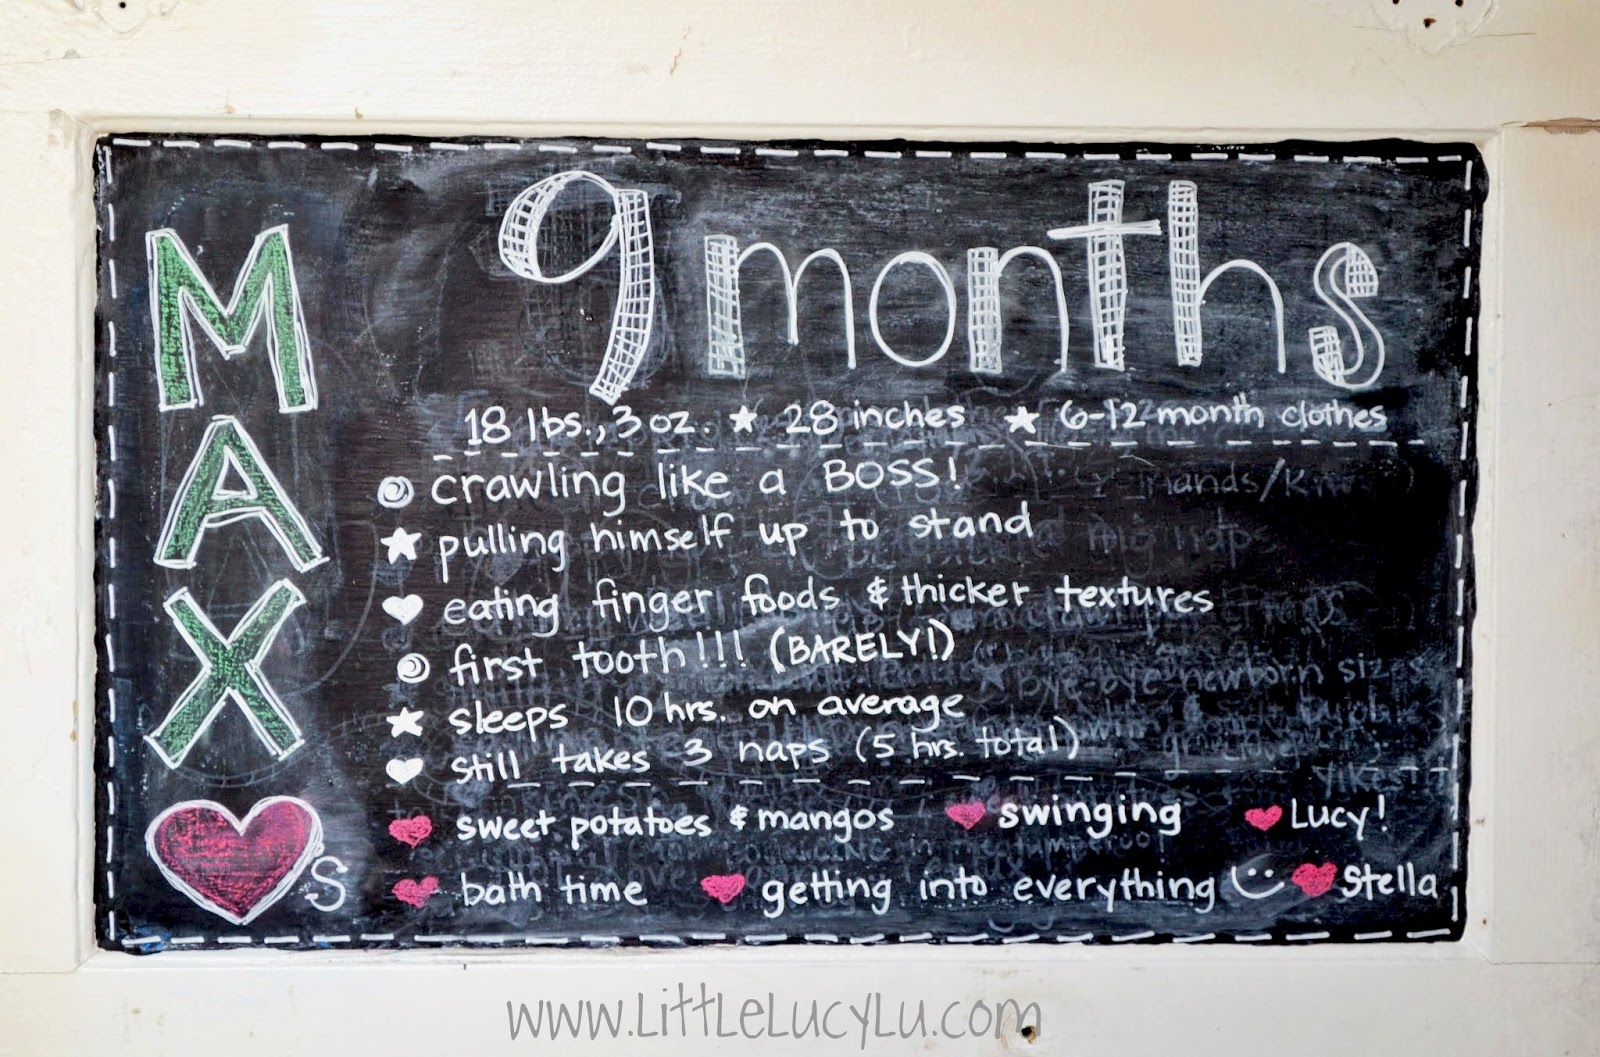 MAX
9 months
18 lbs., 3 oz. ★ 28 inches ★ 6-12 month clothes
crawling like a BOSS!
★ pulling himself up to stand
♥ eating finger foods & thicker textures
first tooth!!! (BARELY!)
★ sleeps 10 hrs. on average
♥ still takes 3 naps (5 hrs. total)
♥s
♥ sweet potatoes & mangos ♥ swinging ♥ Lucy!
♥ bath time ♥ getting into everything ♥ Stella
www.LittleLucyLu.com